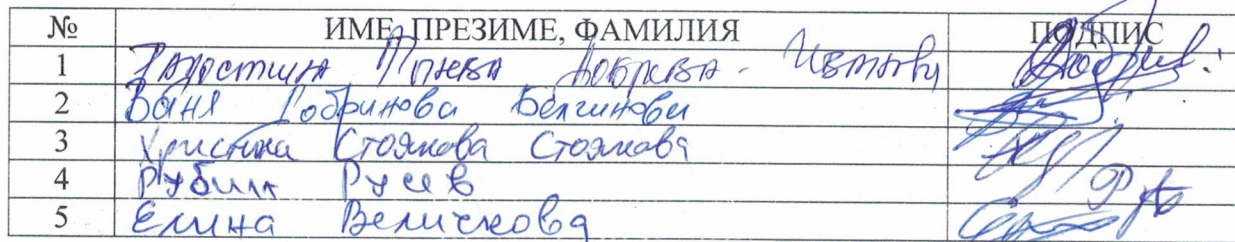 № ИМЕ, ПРЕЗИМЕ, ФАМИЛИЯ ПОДПИС
1 Радостина Добрева - Иванова
2 Ваня Добринова
3 Христина Стоянова Стоянова
4 Рубин Русев
5 Елина Величкова